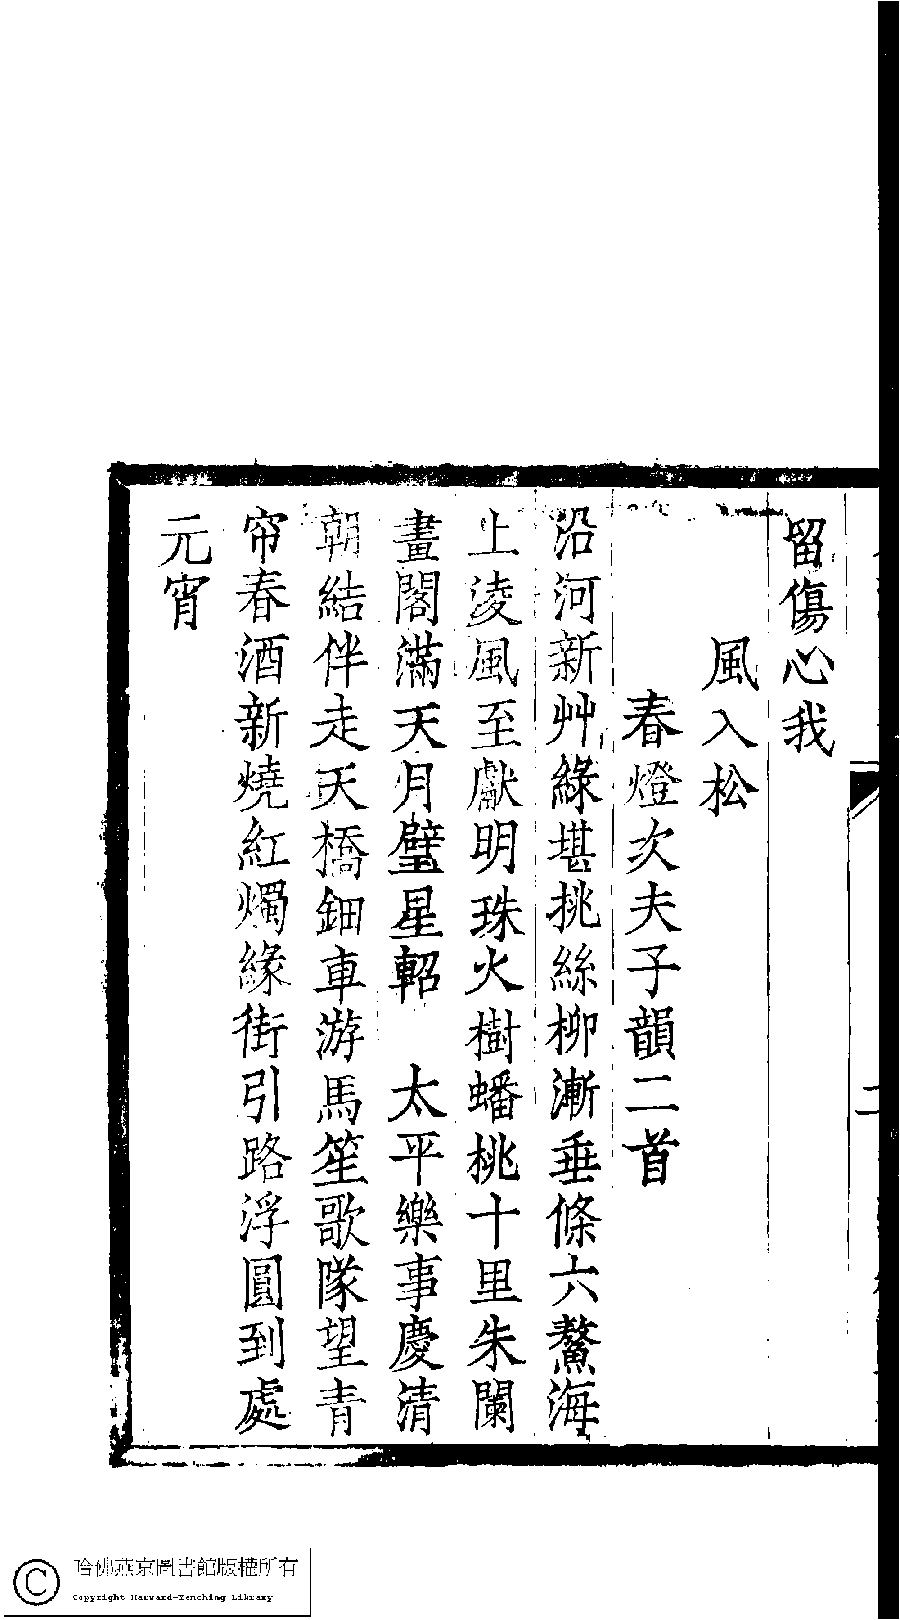 留傷心我
風入松
春燈次夫子韻二首
沿河新艸綠堪挑絲柳漸垂條六鰲海
上淩風至獻明珠火樹蟠桃十里朱闌
畫閣滿天月璧星軺　太平樂事慶清
朝結伴走天橋鈿車游馬笙歌隊望青
帘春酒新燒紅燭緣街引路浮圓到處
元宵
二
哈佛燕京圖書館版權所有
Copyright Harvard-Yenching Library